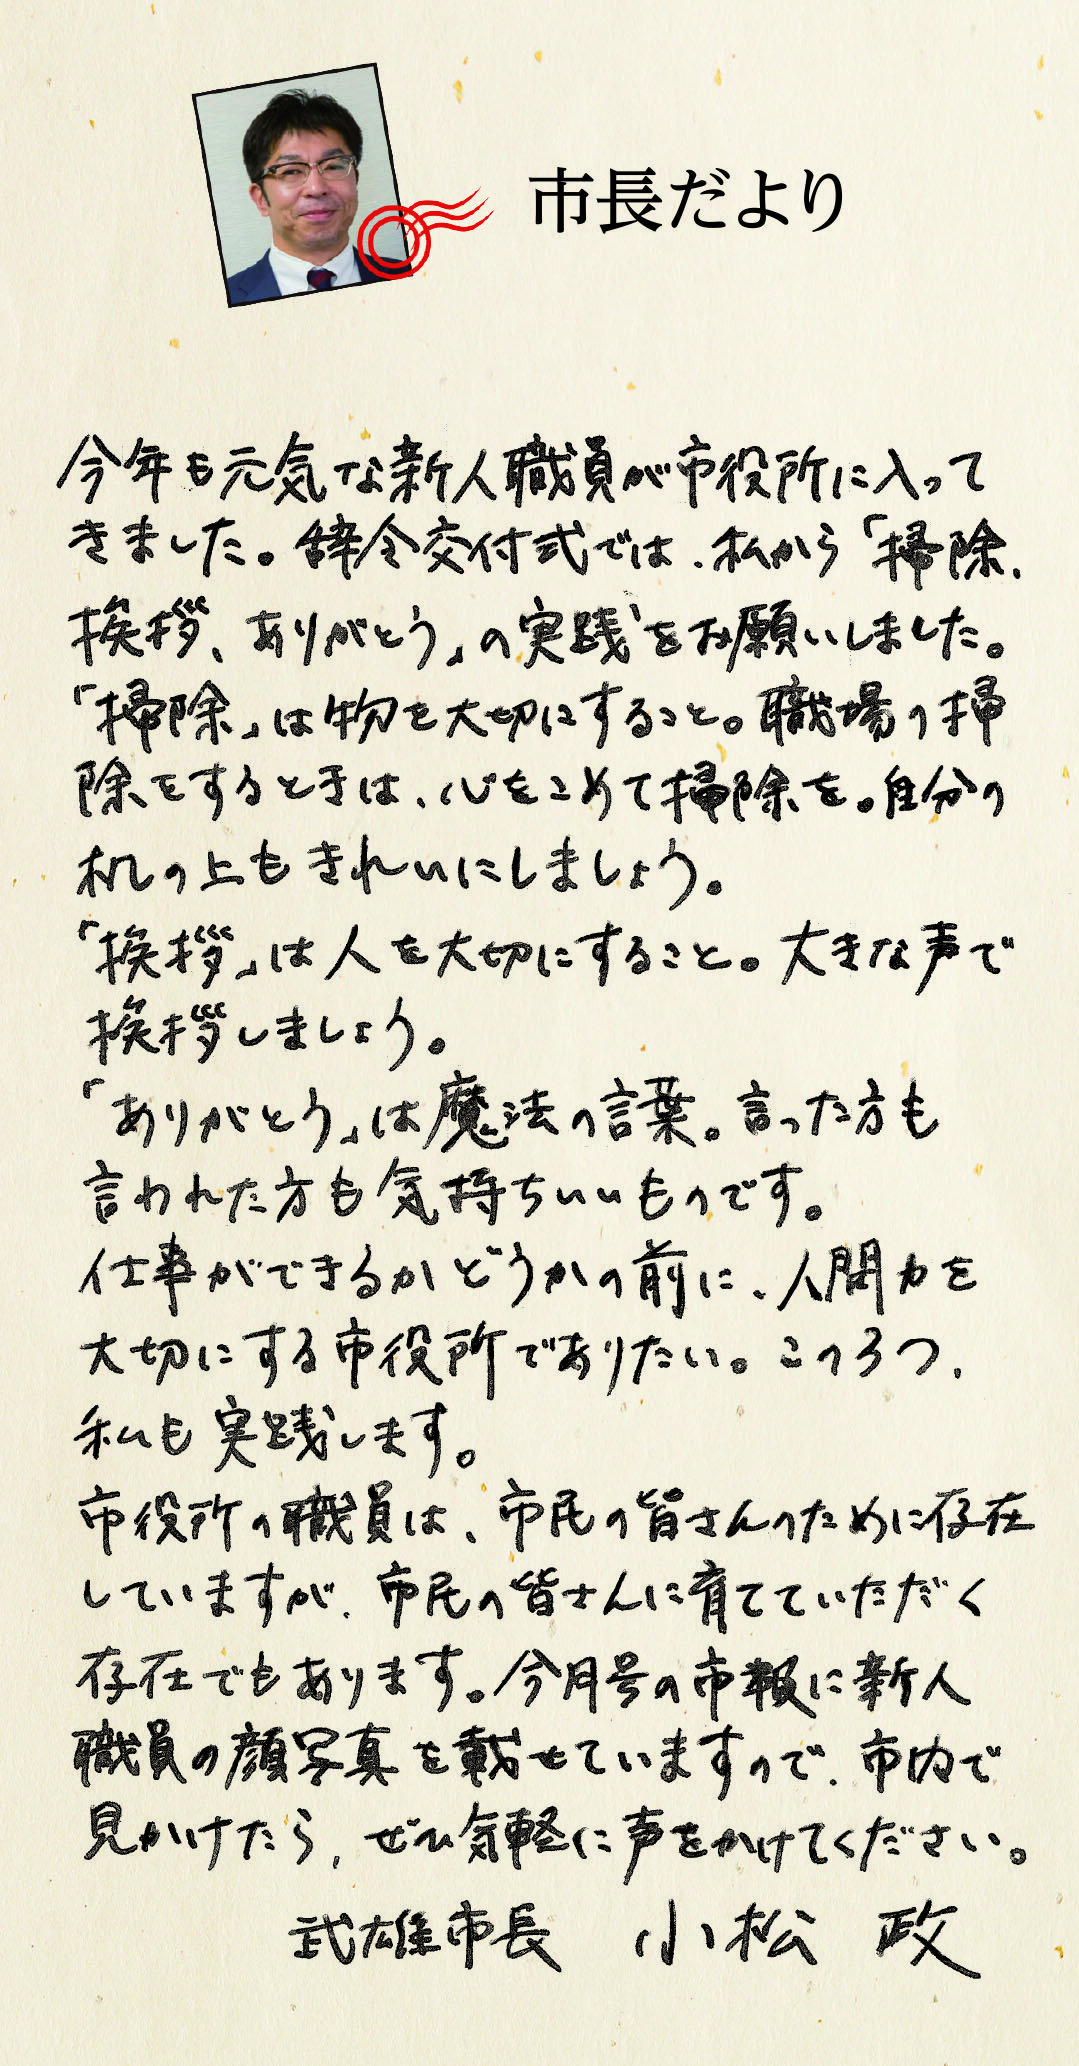 市長だより
今年も元気な新人職員が市役所に入って
きました。辞令交付式では、私から「掃除、
挨拶、ありがとう」の実践をお願いしました。
「掃除」は物を大切にすること。職場の掃
除をするときは、心をこめて掃除を。自分の
机の上もきれいにしましょう。
「挨拶」は人を大切にすること。大きな声で
挨拶しましょう。
「ありがとう」は魔法の言葉。言った方も
言われた方も気持ちいいものです。
仕事ができるかどうかの前に、人間力を
大切にする市役所でありたい。この3つ、
私も実践します。
市役所の職員は、市民の皆さんのために存在
していますが、市民の皆さんに育てていただく
存在でもあります。今月号の市報に新人
職員の顔写真を載せていますので、市内で
見かけたら、ぜひ気軽に声をかけてください。
武雄市長 小松 政